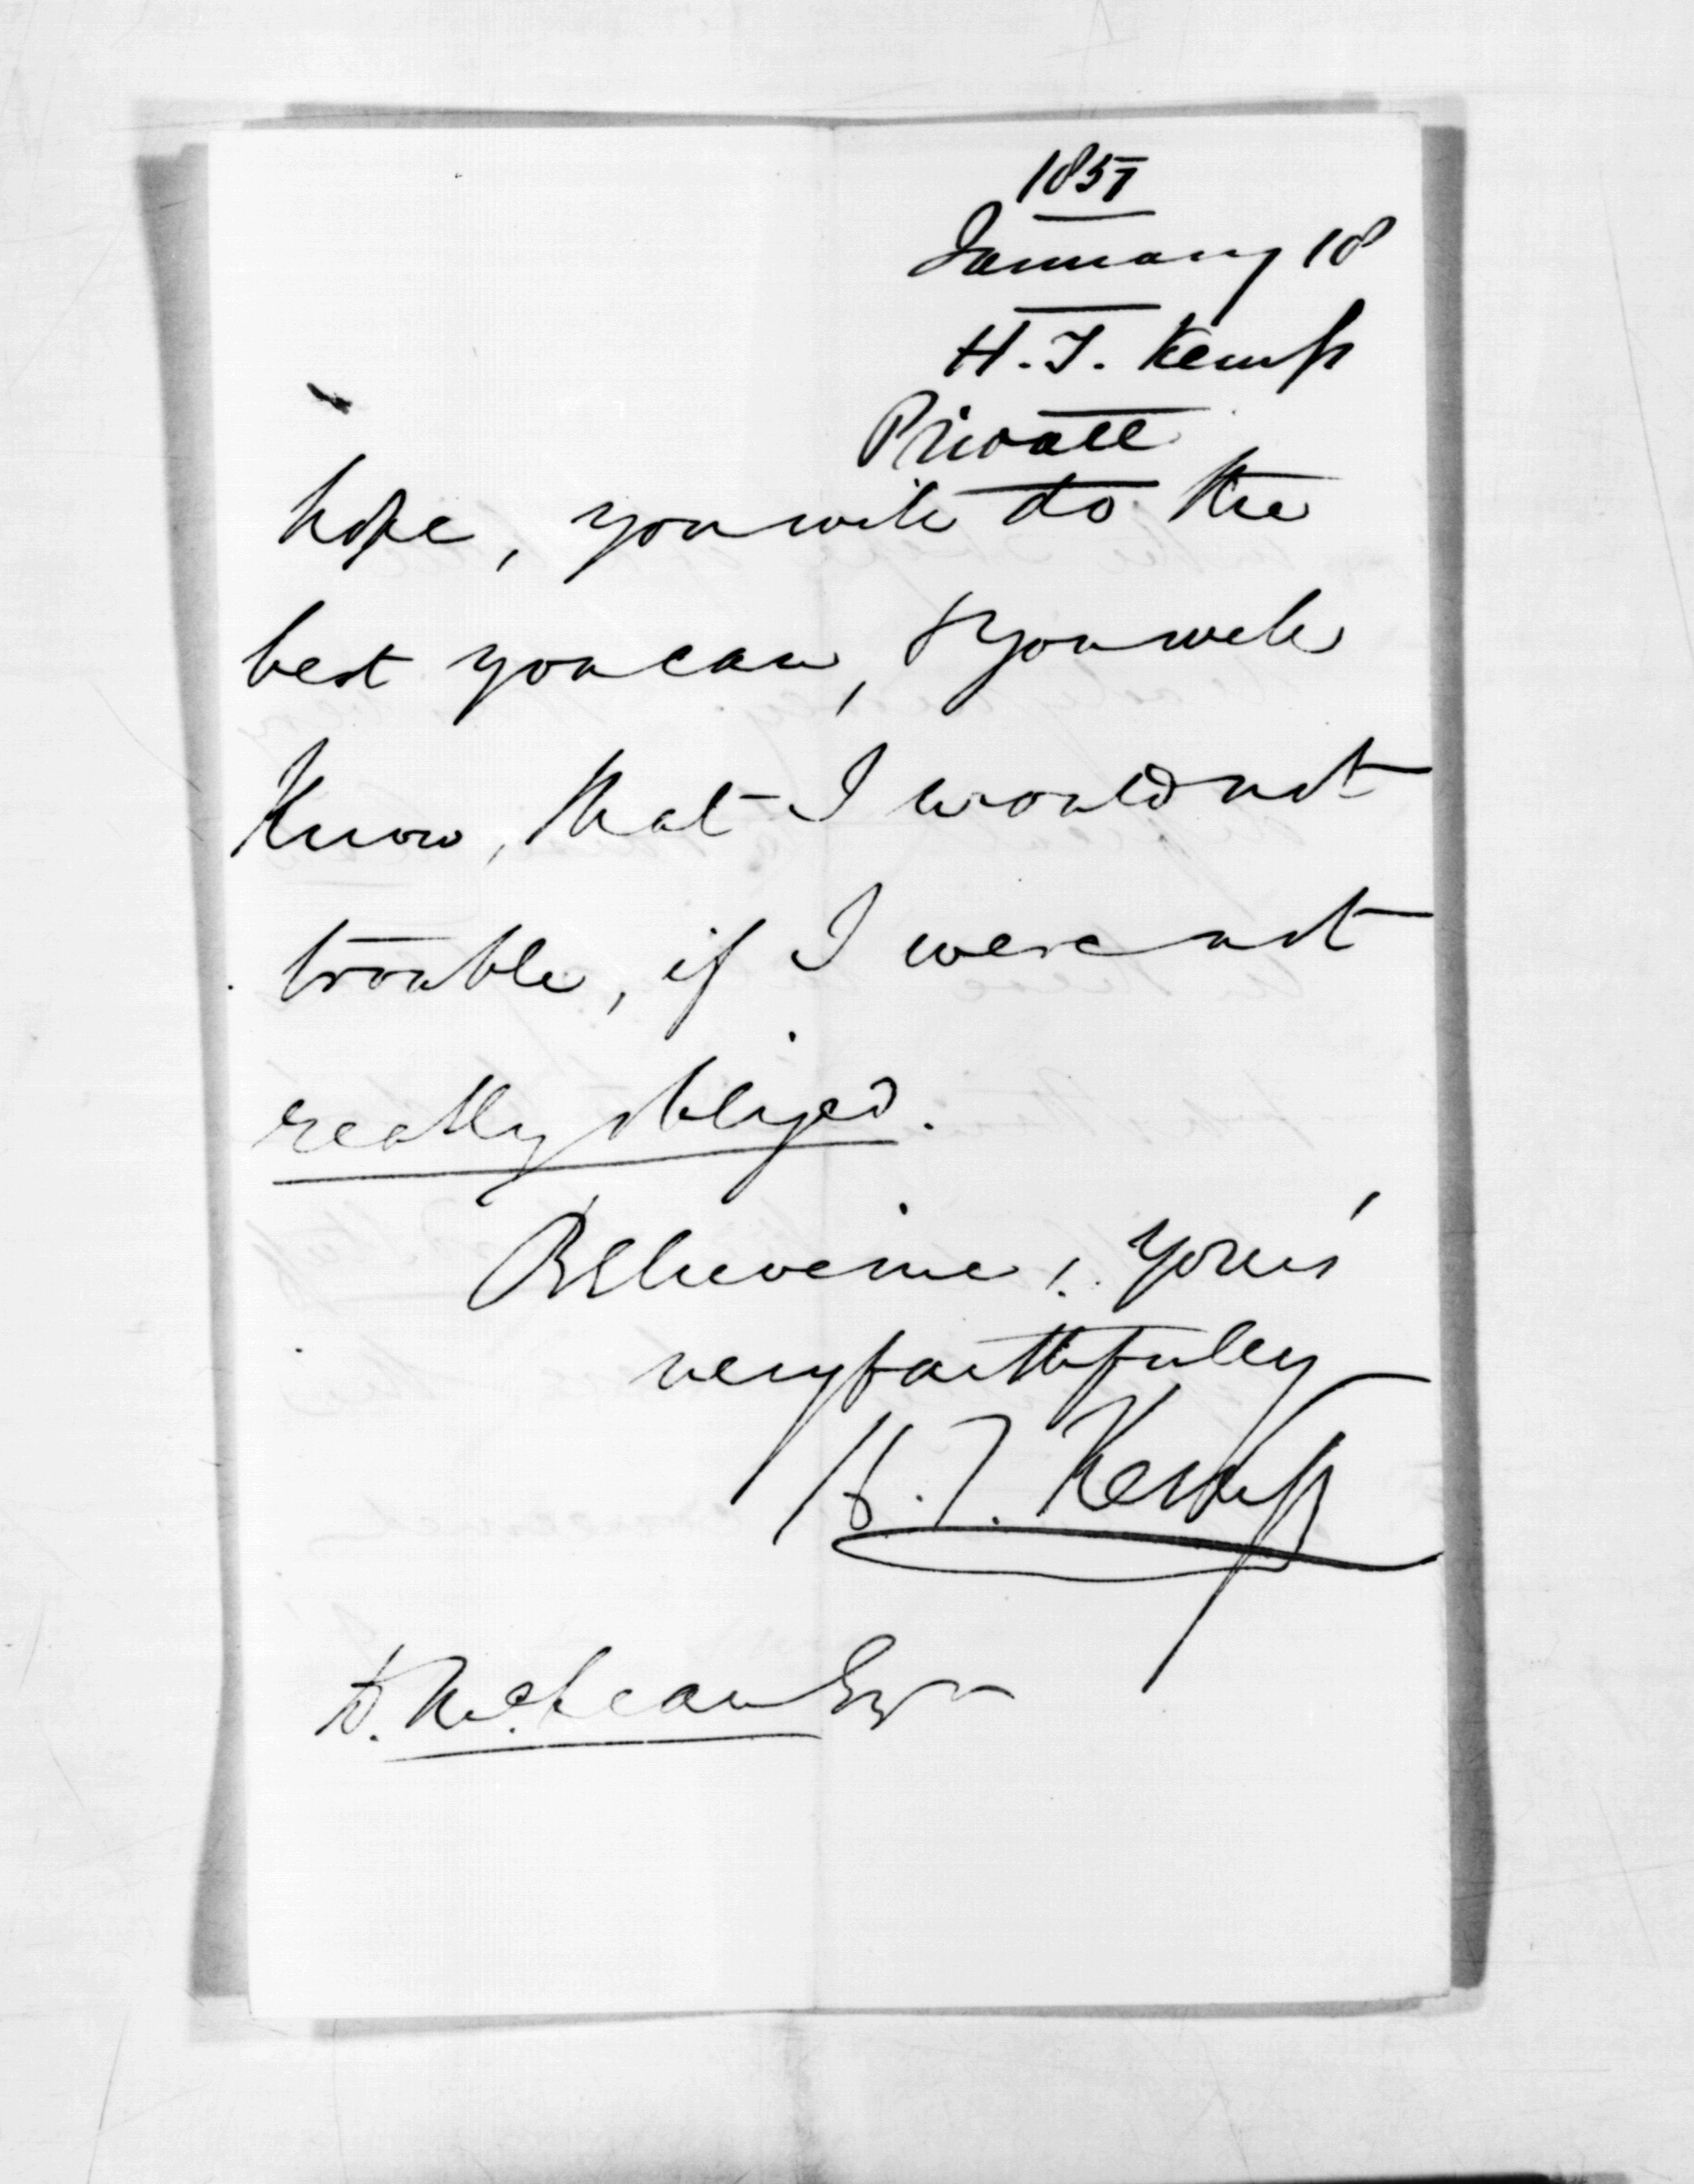 1857
January 18
H. T. Kemp
Private
hope, you will do the
best you can, & you will
Know, that I would not
trouble, if I were not
really obliged.
Believe me, yours'
very faithfully
H. T. Kemp
D. McLean Esqr